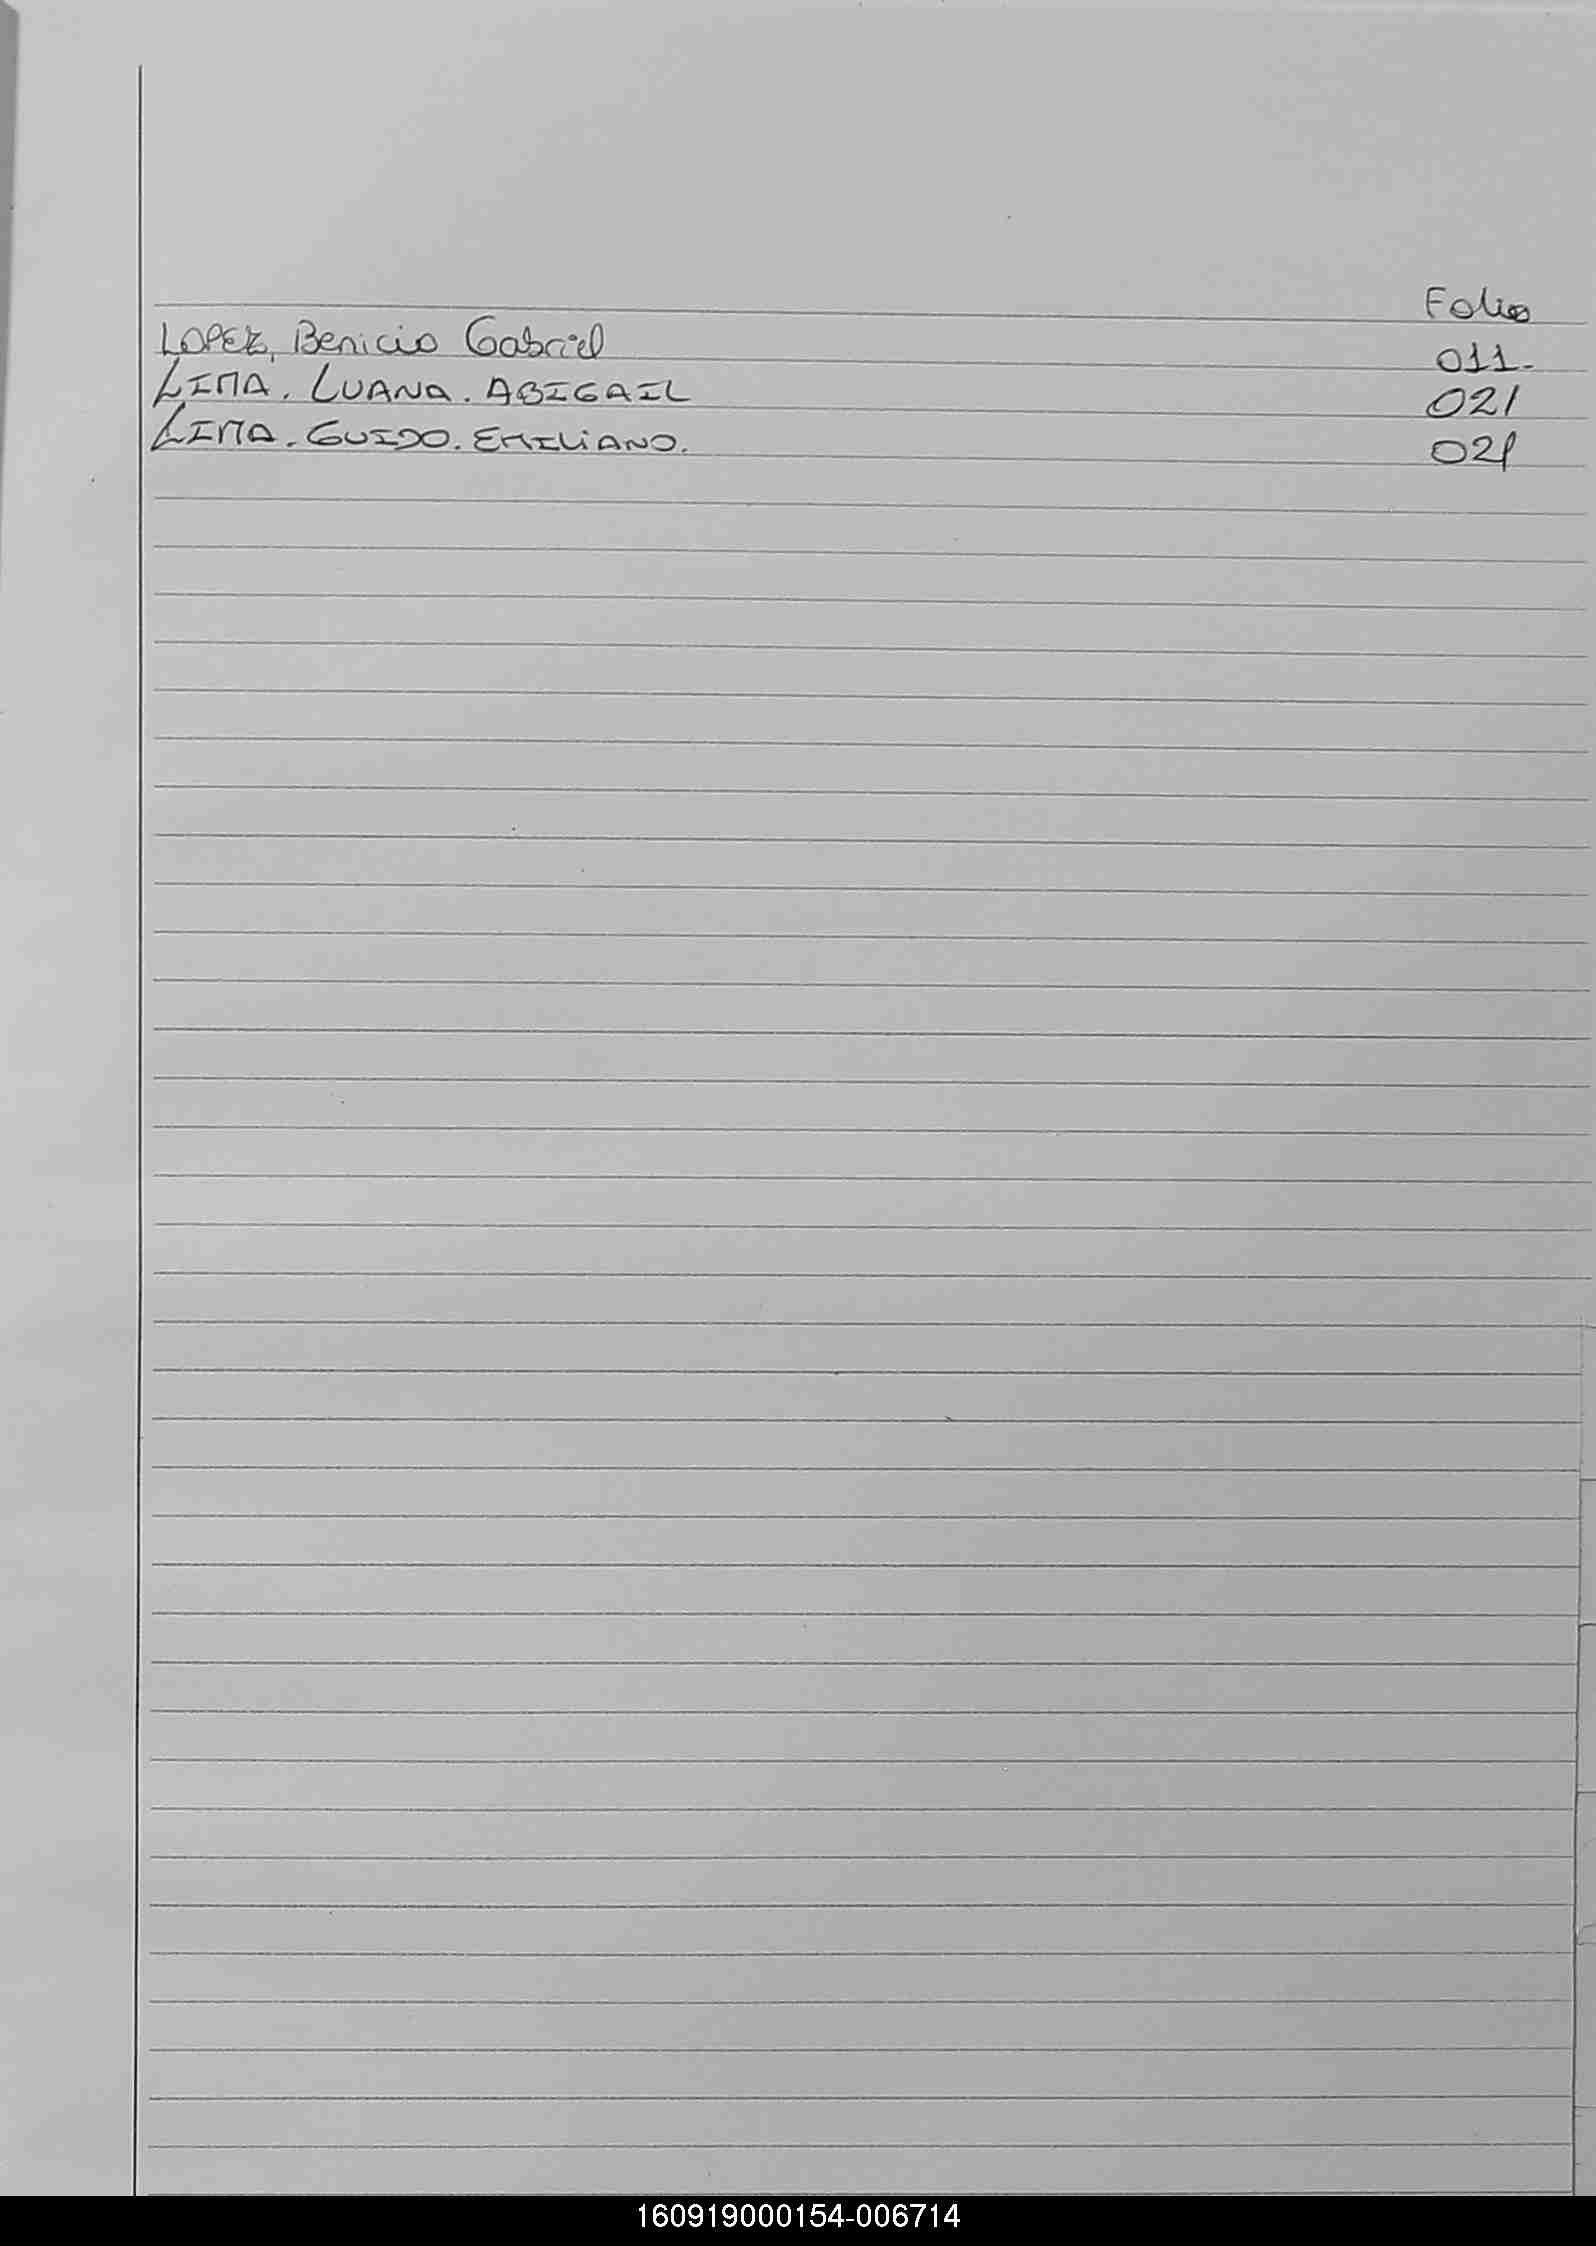 Folio
LOPEZ, Benicio Gabriel 011.
LIMA. LUANA. ABIGAIL 021
LIMA. GUIDO. EMILIANO. 021
160919000154-006714